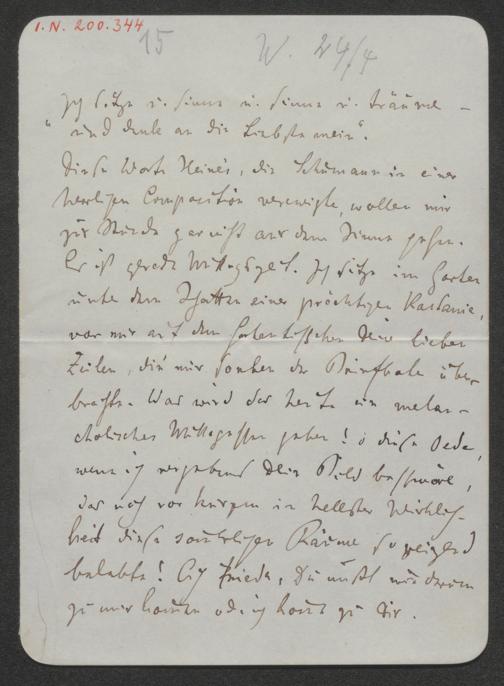 I.N. 200.344
15 W. 24/4
Ich sitze u. sinne u. sinne u. träume –
"und denke an die Liebste mein".
Diese Worte Heine's, die Schumann in einer
herrlichen Composition verewigte, wollen mir
zur Stunde gar nicht aus dem Sinne gehen.
Es ist gerade Mittagszeit. Ich sitze im Garten
unter dem Schatten einer prächtigen Kastanie,
vor mir auf dem Gartentischchen Deine lieben
Zeilen, die mir soeben der Briefbote über-
brachte. Was wird das heute ein melan-
cholisches Mittagessen geben! O diese Oede,
wenn ich vergebens Dein Bild beschwöre,
das noch vor kurzem in hellster Wirklich-
keit diese sämtlichen Räume so
belebte! Frieda, Du mußt wiederum
zu mir kommen oder ich komme zu Dir.